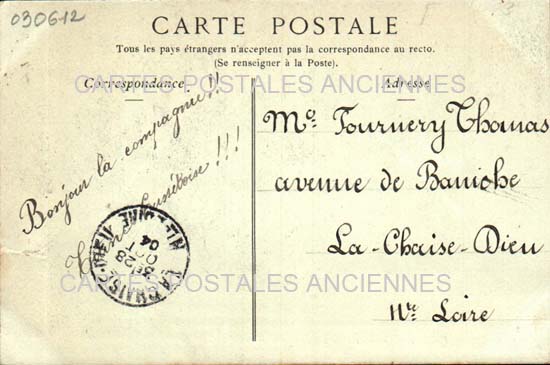 030612
CARTE POSTALE
Tous les pays étrangers n'acceptent pas la correspondance au recto.
(Se renseigner à la Poste).
Correspondance.
Adresse
CARTES POSTALES ANCIENNES
Bonjour la compagnie!!
!!!
Me. Fournery Thomas
avenue de Baniohe
La-Chaise-Dieu
Hte Loire
LA CHAISE-DIEU
HTE LOIRE
3E 28
OCT
04
CARTES POSTALES ANCIENNES